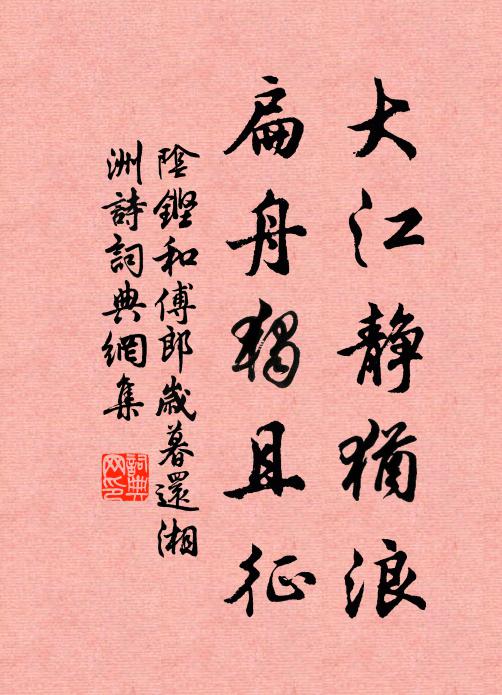 大江静猶浪
扁舟獨且征
陰鏗和傅郎歲暮還湘
洲詩詞典網集
詞典
网印